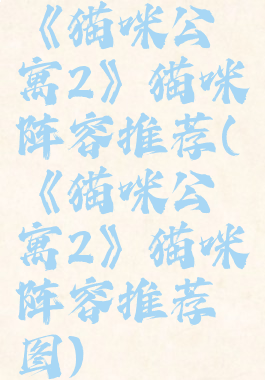 《猫咪公
寓2》猫咪
阵容推荐(
《猫咪公
寓2》猫咪
阵容推荐
图)